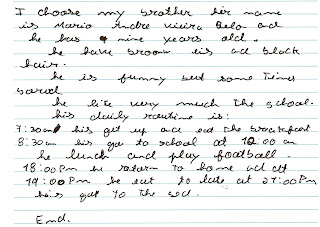 I choose my brother her name
is Mario Andre Vieira Belo ad
he has nine years old.
he have broown eis ad black
hair.
he is funny but some times
bored
he like very much the school.
his daily routine is:
7:30am his get up ace eat the breakfast
8:30am his go to school at 12.00 am
he lunch and play football.
18:00Pm he return to home ad at
19:00Pm he eat to late at 21:00Pm
he's go to the bed.
End.